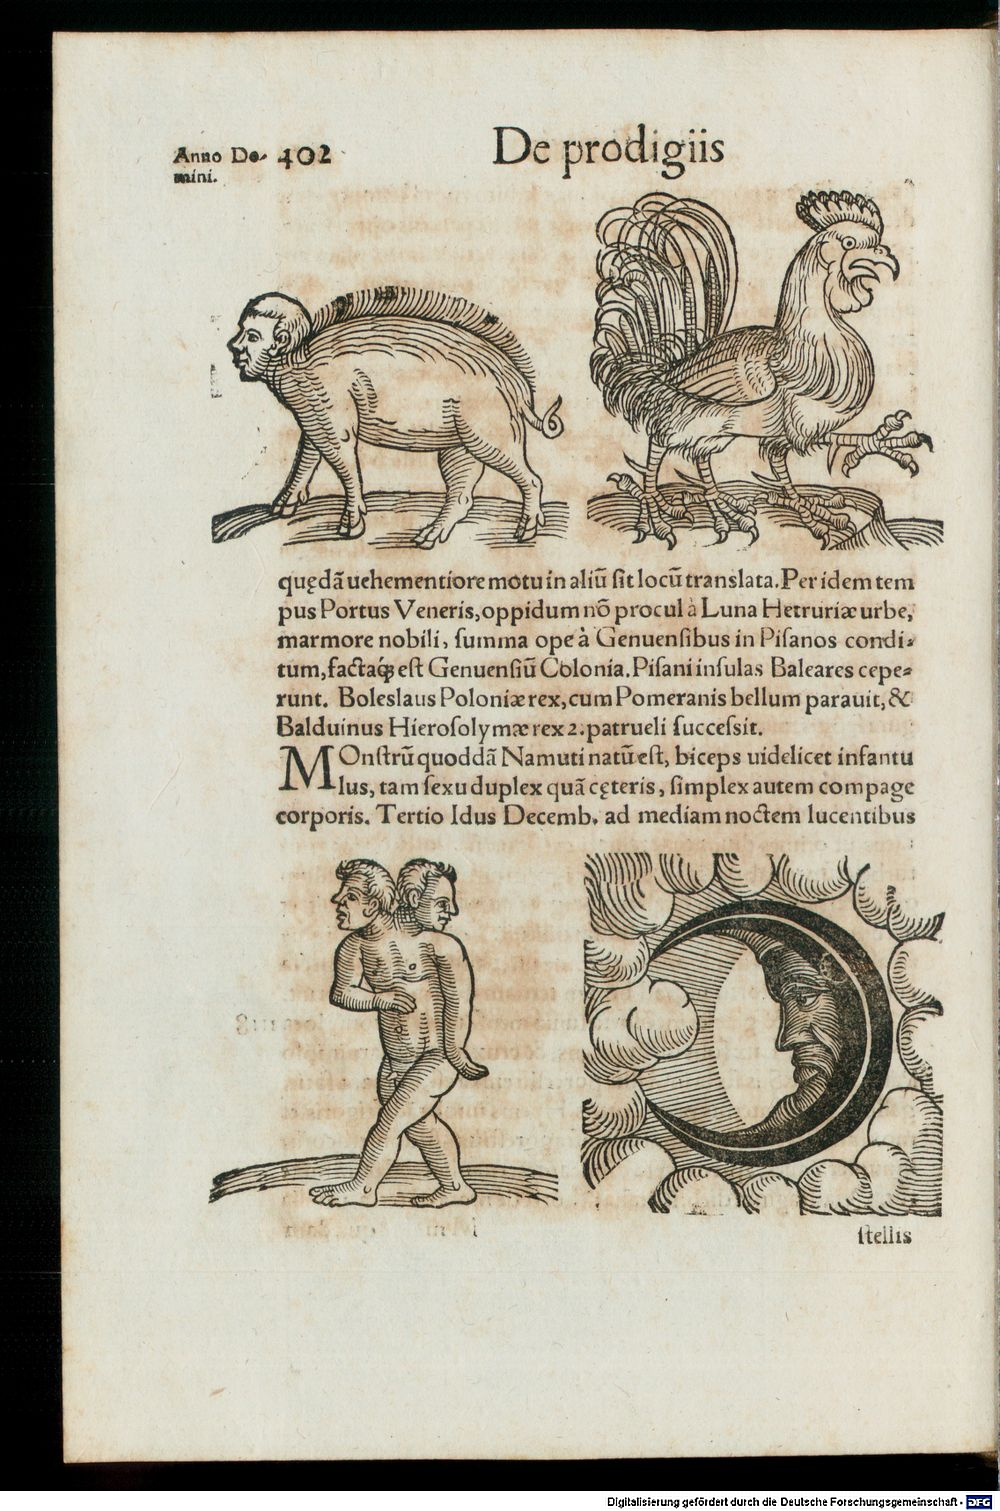 Anno Do- 402 De prodigiis
mini.
quędã uehementiore motu in aliũ sit locũ translata. Per idem tem
pus Portus Veneris, oppidum nõ procul à Luna Hetruriæ urbe,
marmore nobili, summa ope à Genuensibus in Pisanos condi-
tum, factaq́; est Genuensiũ Colonia. Pisani insulas Baleares cepe-
runt. Boleslaus Poloniæ rex, cum Pomeranis bellum parauit, &
Balduinus Hierosolymæ rex 2. patrueli successit.
MOnstrũ quoddã Namuti natũ est, biceps uidelicet infantu
lus, tam sexu duplex quã cęteris, simplex autem compage
corporis. Tertio Idus Decemb. ad mediam noctem lucentibus
stellis
Digitalisierung gefördert durch die Deutsche Forschungsgemeinschaft - DFG